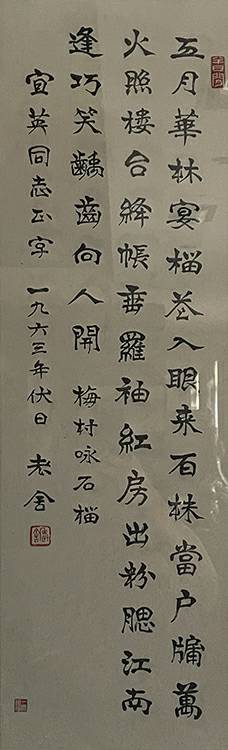 五月華林宴榴花入眼来百株當户牖萬
火照樓台絳帳垂羅袖紅房出粉腮江南
逢巧笑齲齒向人開 梅村咏石榴
宜英同志正字 一九六三年伏日 老舍